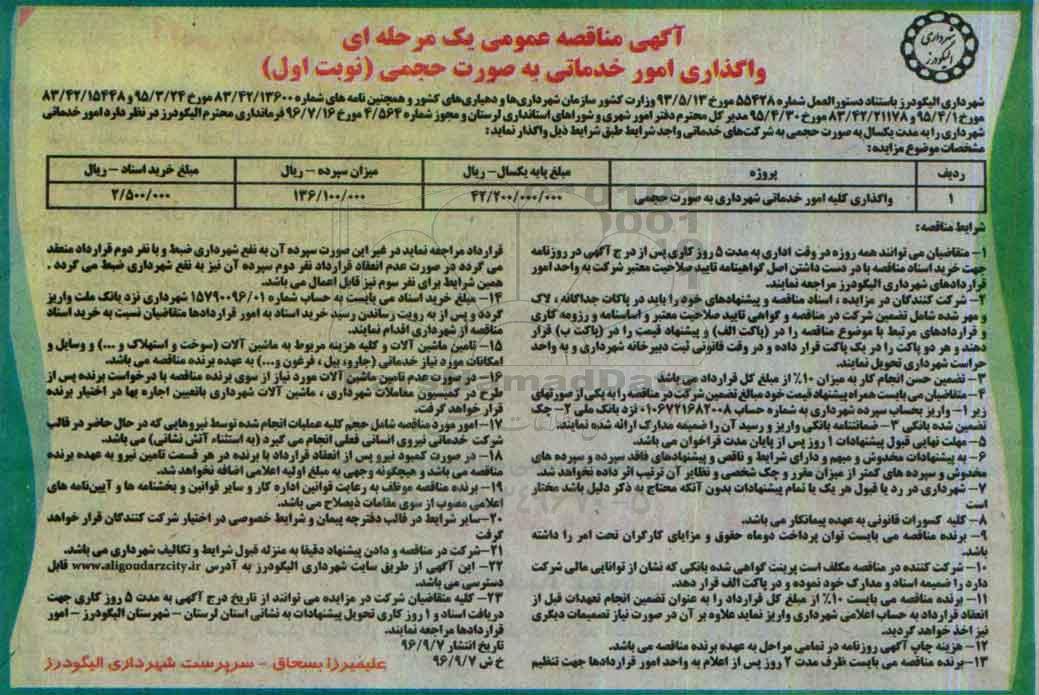 شهرداری
الیگودرز
آگهی مناقصه عمومی یک مرحله ای
واگذاری امور خدماتی به صورت حجمی (نوبت اول)
شهرداری الیگودرز باستناد دستورالعمل شماره ۵۵۴۲۸ مورخ ۹۳/۵/۱۳ وزارت کشور سازمان شهرداری‌ها و دهیاری‌های کشور و همچنین نامه های شماره ۸۳/۴۲/۱۳۶۰۰ مورخ ۹۵/۳/۲۴ و ۸۳/۴۲/۱۵۴۴۸
مورخ ۹۵/۴/۱ و ۸۳/۴۲/۲۱۱۷۸ مورخ ۹۵/۴/۳۰ مدیر کل محترم دفتر امور شهری و شوراهای استانداری لرستان و مجوز شماره ۴/۵۶۴ مورخ ۹۶/۷/۱۶ فرمانداری محترم الیگودرز در نظر دارد امور خدماتی
شهرداری را به مدت یکسال به صورت حجمی به شرکت‌های خدماتی واجد شرایط طبق شرایط ذیل واگذار نماید:
مشخصات موضوع مزایده:
ردیف پروژه مبلغ پایه یکسال- ریال میزان سپرده – ریال مبلغ خرید اسناد – ریال
۱ واگذاری کلیه امور خدماتی شهرداری به صورت حجمی ۴۲/۲۰۰/۰۰۰/۰۰۰ ۱۳۶/۱۰۰/۰۰۰ ۲/۵۰۰/۰۰۰
شرایط مناقصه:
۱– متقاضیان می توانند همه روزه در وقت اداری به مدت ۵ روز کاری پس از درج آگهی در روزنامه
جهت خرید اسناد مناقصه با در دست داشتن اصل گواهینامه تایید صلاحیت معتبر شرکت به واحد امور
قراردادهای شهرداری الیگودرز مراجعه نمایند.
۲– شرکت کنندگان در مزایده ، اسناد مناقصه و پیشنهادهای خود را باید در پاکات جداگانه ، لاک
و مهر شده شامل تضمین شرکت در مناقصه و گواهی تایید صلاحیت معتبر و اساسنامه و رزومه کاری
و قراردادهای مرتبط با موضوع مناقصه را در (پاکت الف) و پیشنهاد قیمت را در (پاکت ب) قرار
دهند و هر دو پاکت را در یک پاکت قرار داده و در وقت قانونی ثبت دبیرخانه شهرداری و به واحد
حراست شهرداری تحویل نمایند.
۳– تضمین حسن انجام کار به میزان ۱۰٪ از مبلغ کل قرارداد می باشد
۴– متقاضیان می بایست همراه پیشنهاد قیمت خود مبالغ تضمین شرکت در مناقصه را به یکی از صورتهای
زیر ۱– واریز بحساب سپرده شهرداری به شماره حساب ۰۱۰۶۷۲۱۶۸۲۰۰۸ نزد بانک ملی ۲– چک
تضمین شده بانکی ۳– ضمانتنامه بانکی واریز و رسید آن را ضمیمه مدارک ارائه شده نمایند.
۵– مهلت نهایی قبول پیشنهادات ۱ روز پس از پایان مدت فراخوان می باشد.
۶– به پیشنهادات مخدوش و مبهم و دارای شرایط و ناقص و پیشنهادهای فاقد سپرده و سپرده های
مخدوش و سپرده های کمتر از میزان مقرر و چک شخصی و نظایر آن ترتیب اثر داده نخواهد شد.
۷– شهرداری در رد یا قبول هر یک یا تمام پیشنهادات بدون آنکه محتاج به ذکر دلیل باشد مختار
است
۸– کلیه کسورات قانونی به عهده پیمانکار می باشد.
۹– برنده مناقصه می بایست توان پرداخت دوماه حقوق و مزایای کارگران تحت امر را داشته
باشد.
۱۰– شرکت کننده در مناقصه مکلف است پرینت گواهی شده بانکی که نشان از توانایی مالی شرکت
دارد را ضمیمه اسناد و مدارک خود نموده و در پاکت الف قرار دهد.
۱۱– برنده مناقصه می بایست ۱۰٪ از مبلغ کل قرارداد را به عنوان تضمین انجام تعهدات قبل از
انعقاد قرارداد به حساب اعلامی شهرداری واریز نماید علاوه بر آن در صورت نیاز تصمیمات دیگری
نیز اخذ خواهد گردید.
۱۲– هزینه چاپ آگهی روزنامه در تمامی مراحل به عهده برنده مناقصه می باشد.
۱۳–برنده مناقصه می بایست ظرف مدت ۲ روز پس از اعلام به واحد امور قراردادها جهت تنظیم
قرارداد مراجعه نماید در غیر این صورت سپرده آن به نفع شهرداری ضبط و با نفر دوم قرارداد منعقد
می گردد در صورت عدم انعقاد قرارداد نفر دوم سپرده آن نیز به نفع شهرداری ضبط می گردد .
همین شرایط برای نفر سوم نیز قابل اعمال می باشد.
۱۴– مبلغ خرید اسناد می بایست به حساب شماره ۱۵۷۹۰۰۹۶/۰۱ شهرداری نزد بانک ملت واریز
گردد و پس از به رویت رساندن رسید خرید اسناد به امور قراردادها متقاضیان نسبت به خرید اسناد
مناقصه از شهرداری اقدام نمایند.
۱۵– تامین ماشین آلات و کلیه هزینه مربوط به ماشین آلات (سوخت و استهلاک و ...) و وسایل و
امکانات مورد نیاز خدماتی (جارو، بیل ، فرغون و...) به عهده برنده مناقصه می باشد.
۱۶– در صورت عدم تامین ماشین آلات مورد نیاز از سوی برنده مناقصه با درخواست برنده پس از
طرح در کمیسیون معاملات شهرداری ، ماشین آلات شهرداری باتعیین اجاره بها در اختیار برنده
قرار خواهد گرفت.
۱۷–امور مورد مناقصه شامل حجم کلیه عملیات انجام شده توسط نیروهایی که در حال حاضر در قالب
شرکت خدماتی نیروی انسانی فعلی انجام می گیرد (به استثناء آتش نشانی) می باشد.
۱۸– در صورت کمبود نیرو پس از انعقاد قرارداد با برنده در هر قسمت تامین نیرو به عهده برنده
مناقصه می باشد و هیچگونه وجهی به مبلغ اولیه اعلامی اضافه نخواهد شد.
۱۹– برنده مناقصه موظف به رعایت قوانین اداره کار و سایر قوانین و بخشنامه ها و آیین‌نامه های
اعلامی مصوب از سوی مقامات ذیصلاح می باشد.
۲۰–سایر شرایط در قالب دفترچه پیمان و شرایط خصوصی در اختیار شرکت کنندگان قرار خواهد
گرفت
۲۱–شرکت در مناقصه و دادن پیشنهاد دقیقا به منزله قبول شرایط و تکالیف شهرداری می باشد.
۲۲– این آگهی از طریق سایت شهرداری الیگودرز به آدرس www.aligoudarzcity.ir قابل
دسترسی می باشد.
۲۳– کلیه متقاضیان شرکت در مزایده می توانند از تاریخ درج آگهی به مدت ۵ روز کاری جهت
دریافت اسناد و ۱ روز کاری تحویل پیشنهادات به نشانی استان لرستان – شهرستان الیگودرز – امور
قراردادها مراجعه نمایند.
تاریخ انتشار ۹۶/۹/۷
خ ش ۹۶/۹/۷
علیمیرزا بسحاق – سرپرست شهرداری الیگودرز